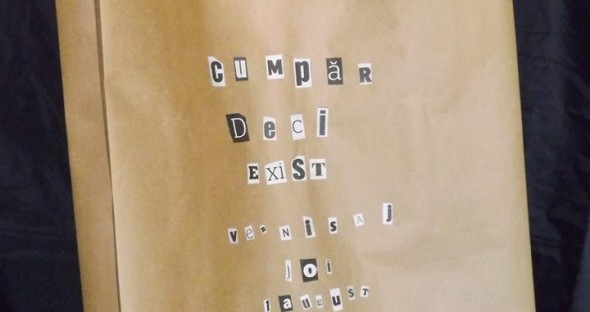 CUMpăR
Deci
EXiST
verNisaj
joi
1 auguST